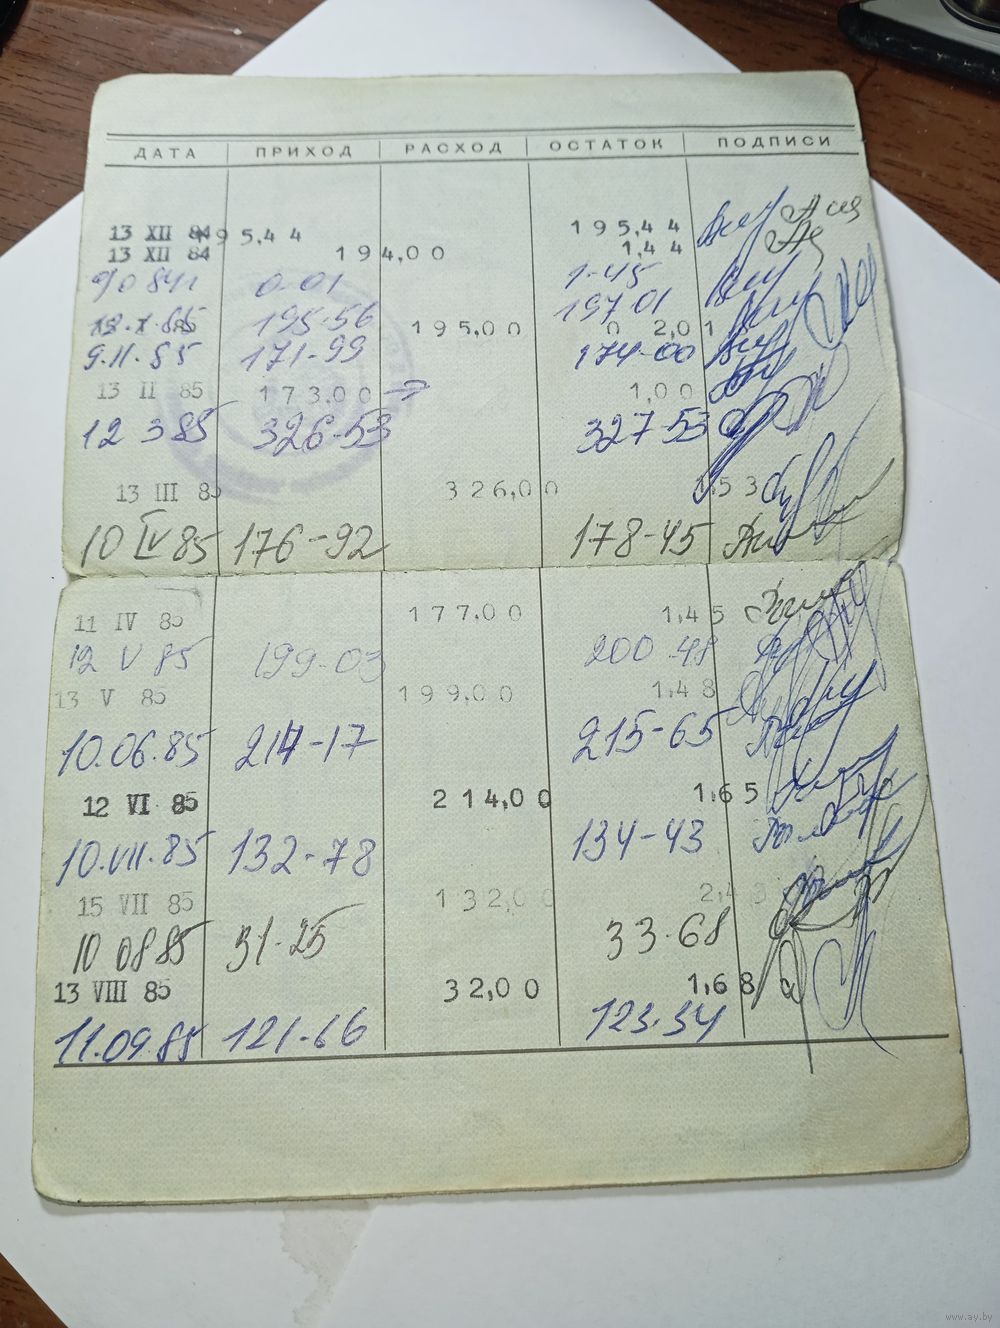 ДАТА ПРИХОД РАСХОД ОСТАТОК ПОДПИСИ
13 XII 84 195,44 195,44
13 XII 84 194,00 1,44
0-01 1-45
195-56 197 01
85 195,00 2,01
9.II.85 171-99 174-00
13 II 85 173,00 1,00
12 3 85 326-53 327-53
13 III 85 326,00 1,53
10 IV 85 176-92 178-45
11 IV 85 177,00 1,45
12 V 85 199-03 200-48
13 V 85 199,00 1,48
10.06.85 214-17 215-65
12 VI 85 214,00 1,65
10.VII.85 132-78 134-43
15 VII 85 132,00 2,43
10 08 85 31-25 33-68
13 VIII 85 32,00 1,68
11.09.85 121-66 123-34
www.ay.by